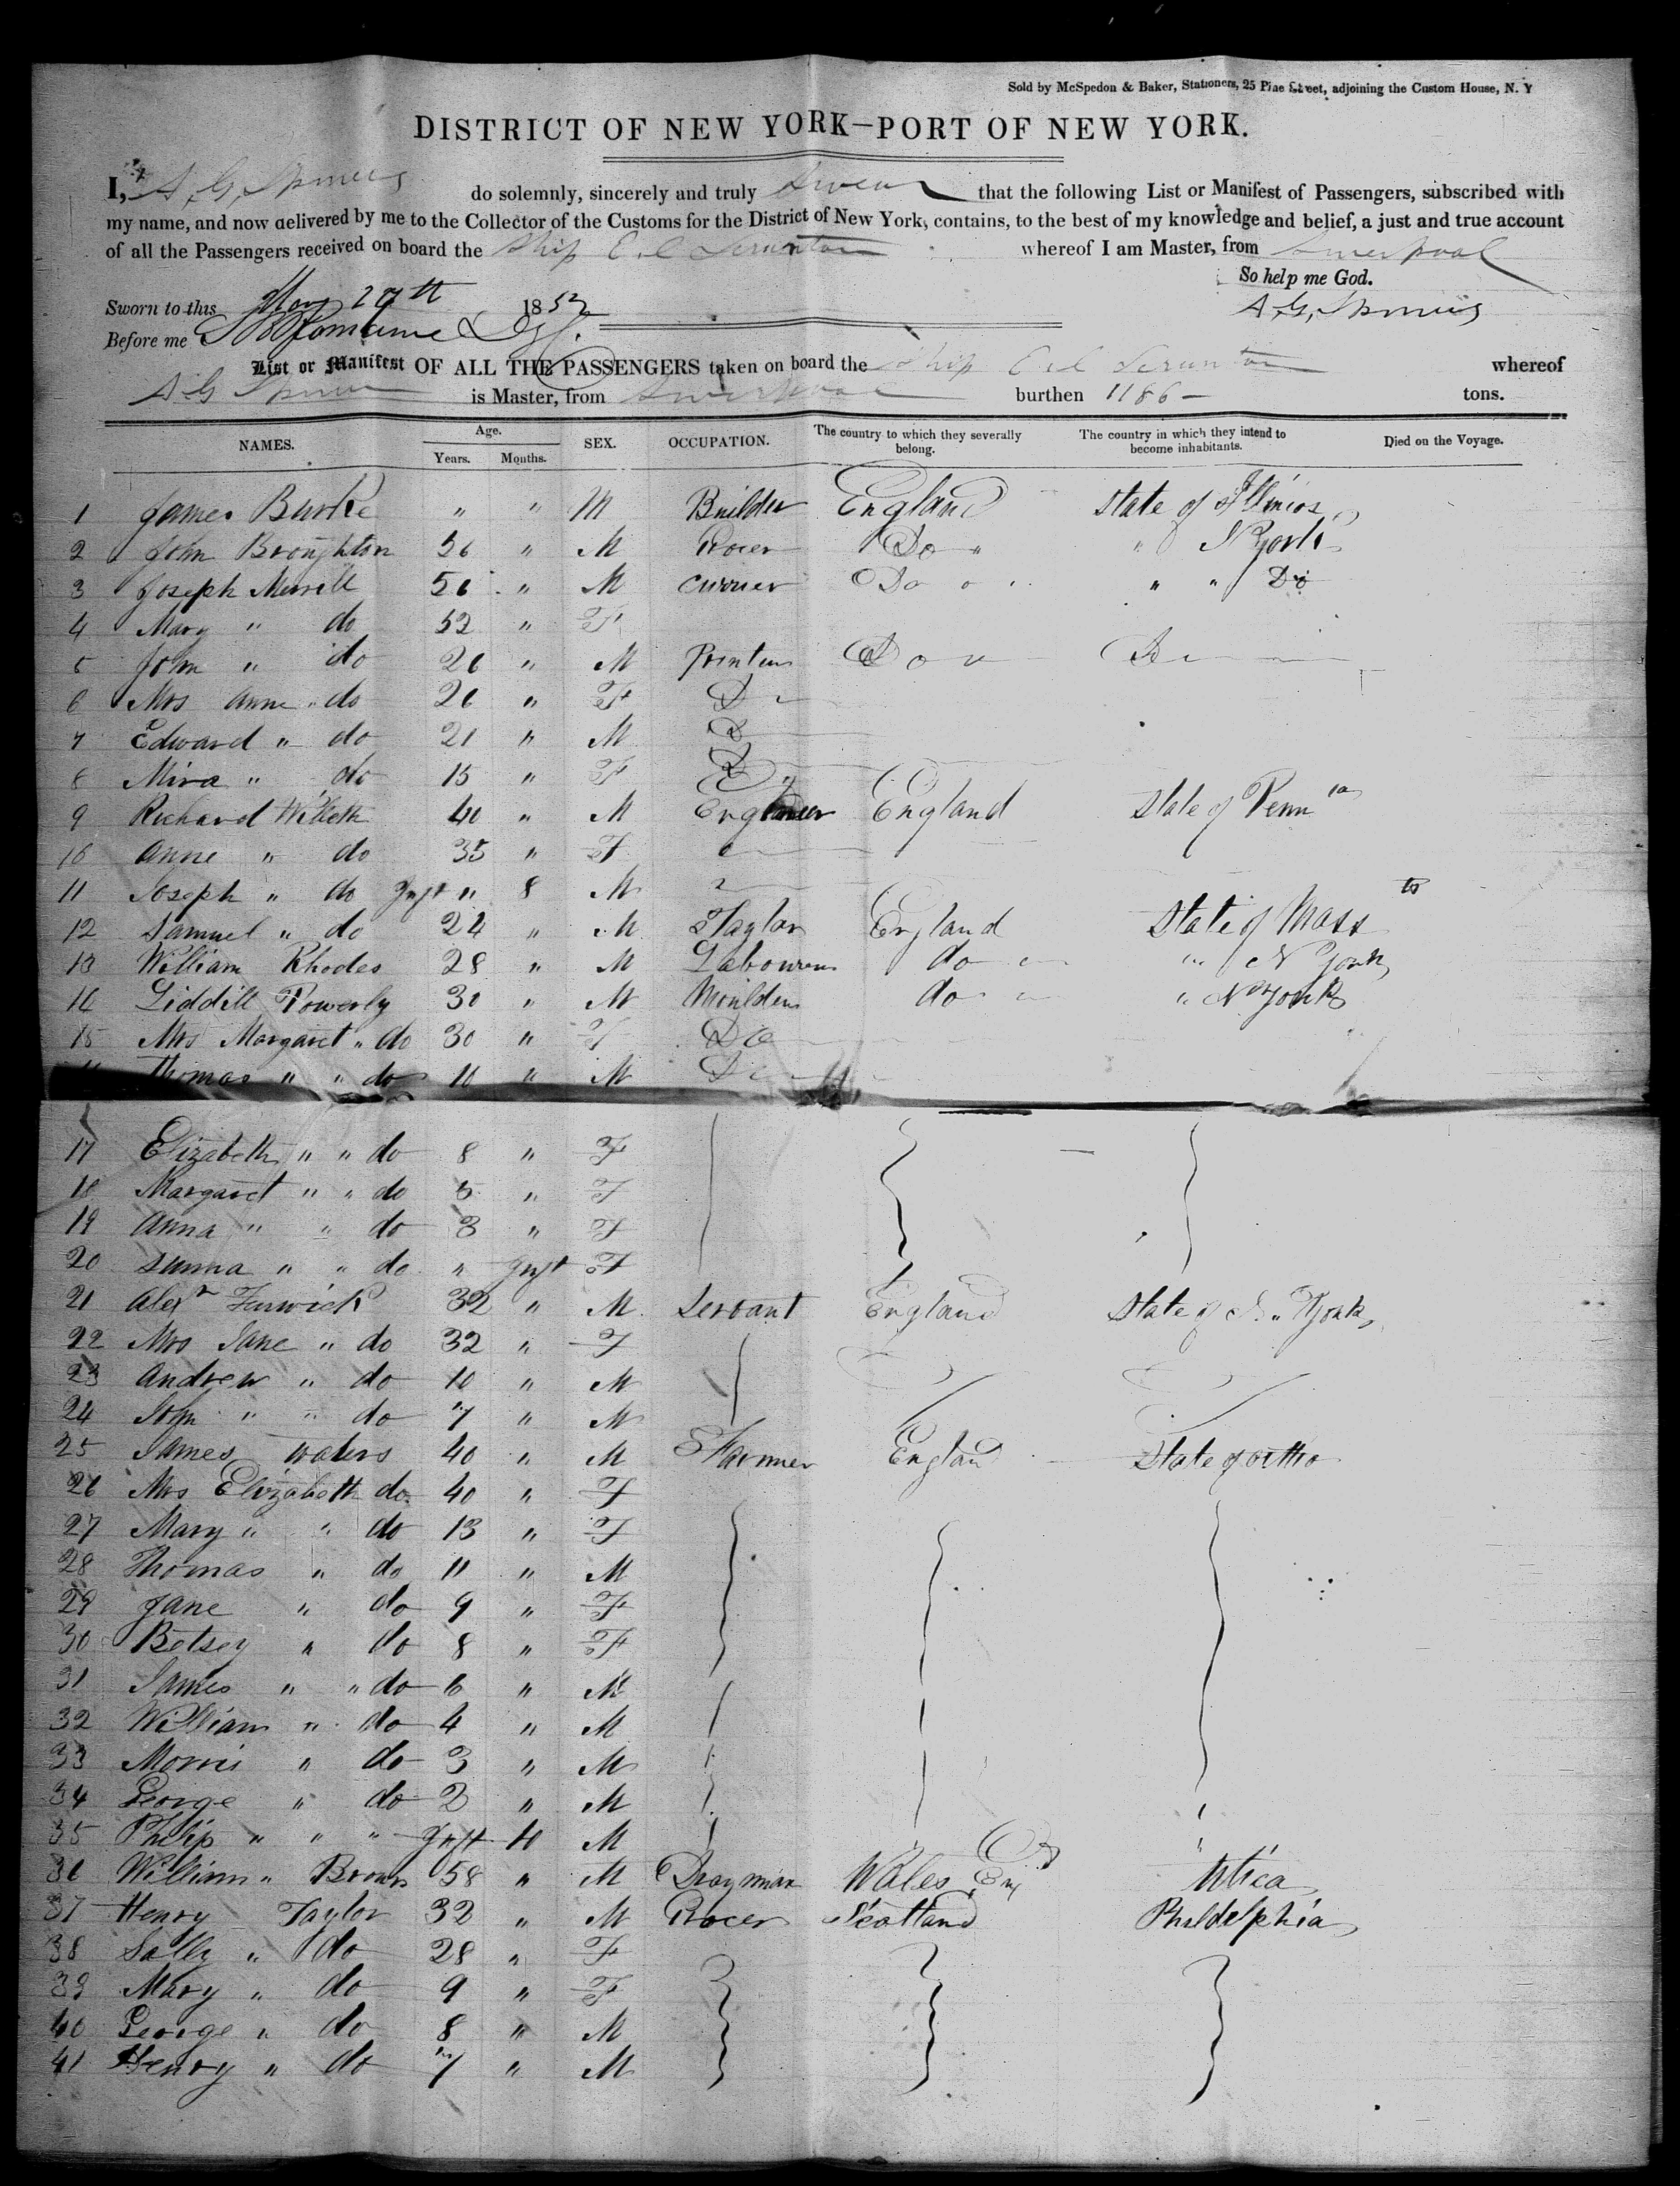 Sold by McSpedon & Baker, Stationers, 25 Pine Street, adjoining the Custom House, N. Y
DISTRICT OF NEW YORK—PORT OF NEW YORK.
I, A, G, do solemnly, sincerely and truly Swear that the following List or Manifest of Passengers, subscribed with
my name, and now delivered by me to the Collector of the Customs for the District of New York, contains, to the best of my knowledge and belief, a just and true account
of all the Passengers received on board the Ship whereof I am Master, from Liverpool
So help me God.
Sworn to this May 1852 A, G,
Before me
List or Manifest OF ALL THE PASSENGERS taken on board the Ship whereof
A G is Master, from Liverpool burthen 1186 — tons.
NAMES. Age. Years. Months. SEX. OCCUPATION. The country to which they severally belong. The country in which they intend to become inhabitants. Died on the Voyage.
1 James Burke " " M Builder England State of Illinios
2 John Broughton 56 " M Grocer Do " " N York
3 Joseph Merrell 56 " M Currier Do " " Do
4 Mary " do 52 " F
5 John " do 26 " M Printer Do Do
6 Mrs Anne " do 26 " F Do
7 Edward " do 21 " M
8 Mira " do 15 " F
9 Richard 40 " M Engineer England State of Penn ia
10 Anne " do 35 " F
11 Joseph " do Inft " 8 M
12 Samuel " do 24 " M Taylor England State of Mass ts
13 William Rhodes 28 " M Labourer do " N York
14 Liddill Powerly 30 " M Moulder do " N York
15 Mrs Margaret " do 30 " F Do
Thomas " " do 10 " M Do
17 Elizabeth " " do 8 " F
18 Margaret " " do 5 " F
19 Anna " " do 3 " F
20 " " do " Inft F
21 Alexr 32 " M Servant England State of N. York
22 Mrs Jane " do 32 " F
23 Andrew " do 10 " M
24 John " " do 7 " M
25 James Waters 40 " M Farmer England State of
26 Mrs Elizabeth do 40 " F
27 Mary " " do 13 " F
28 Thomas " do 11 " M
29 Jane " do 9 " F
30 Betsey " do 8 " F
31 James " " do 6 " M
32 William " do 4 " M
33 Morris " do 3 " M
34 George " do 2 " M
35 Philip " " " Inft 10 M
36 William " Brown 58 " M Drayman Wales Utica
37 Henry Taylor 32 " M Grocer Scotland Phildelphia
38 Sally " do 28 " F
39 Mary " do 9 " F
40 George " do 8 " M
41 Henry " do 7 " M